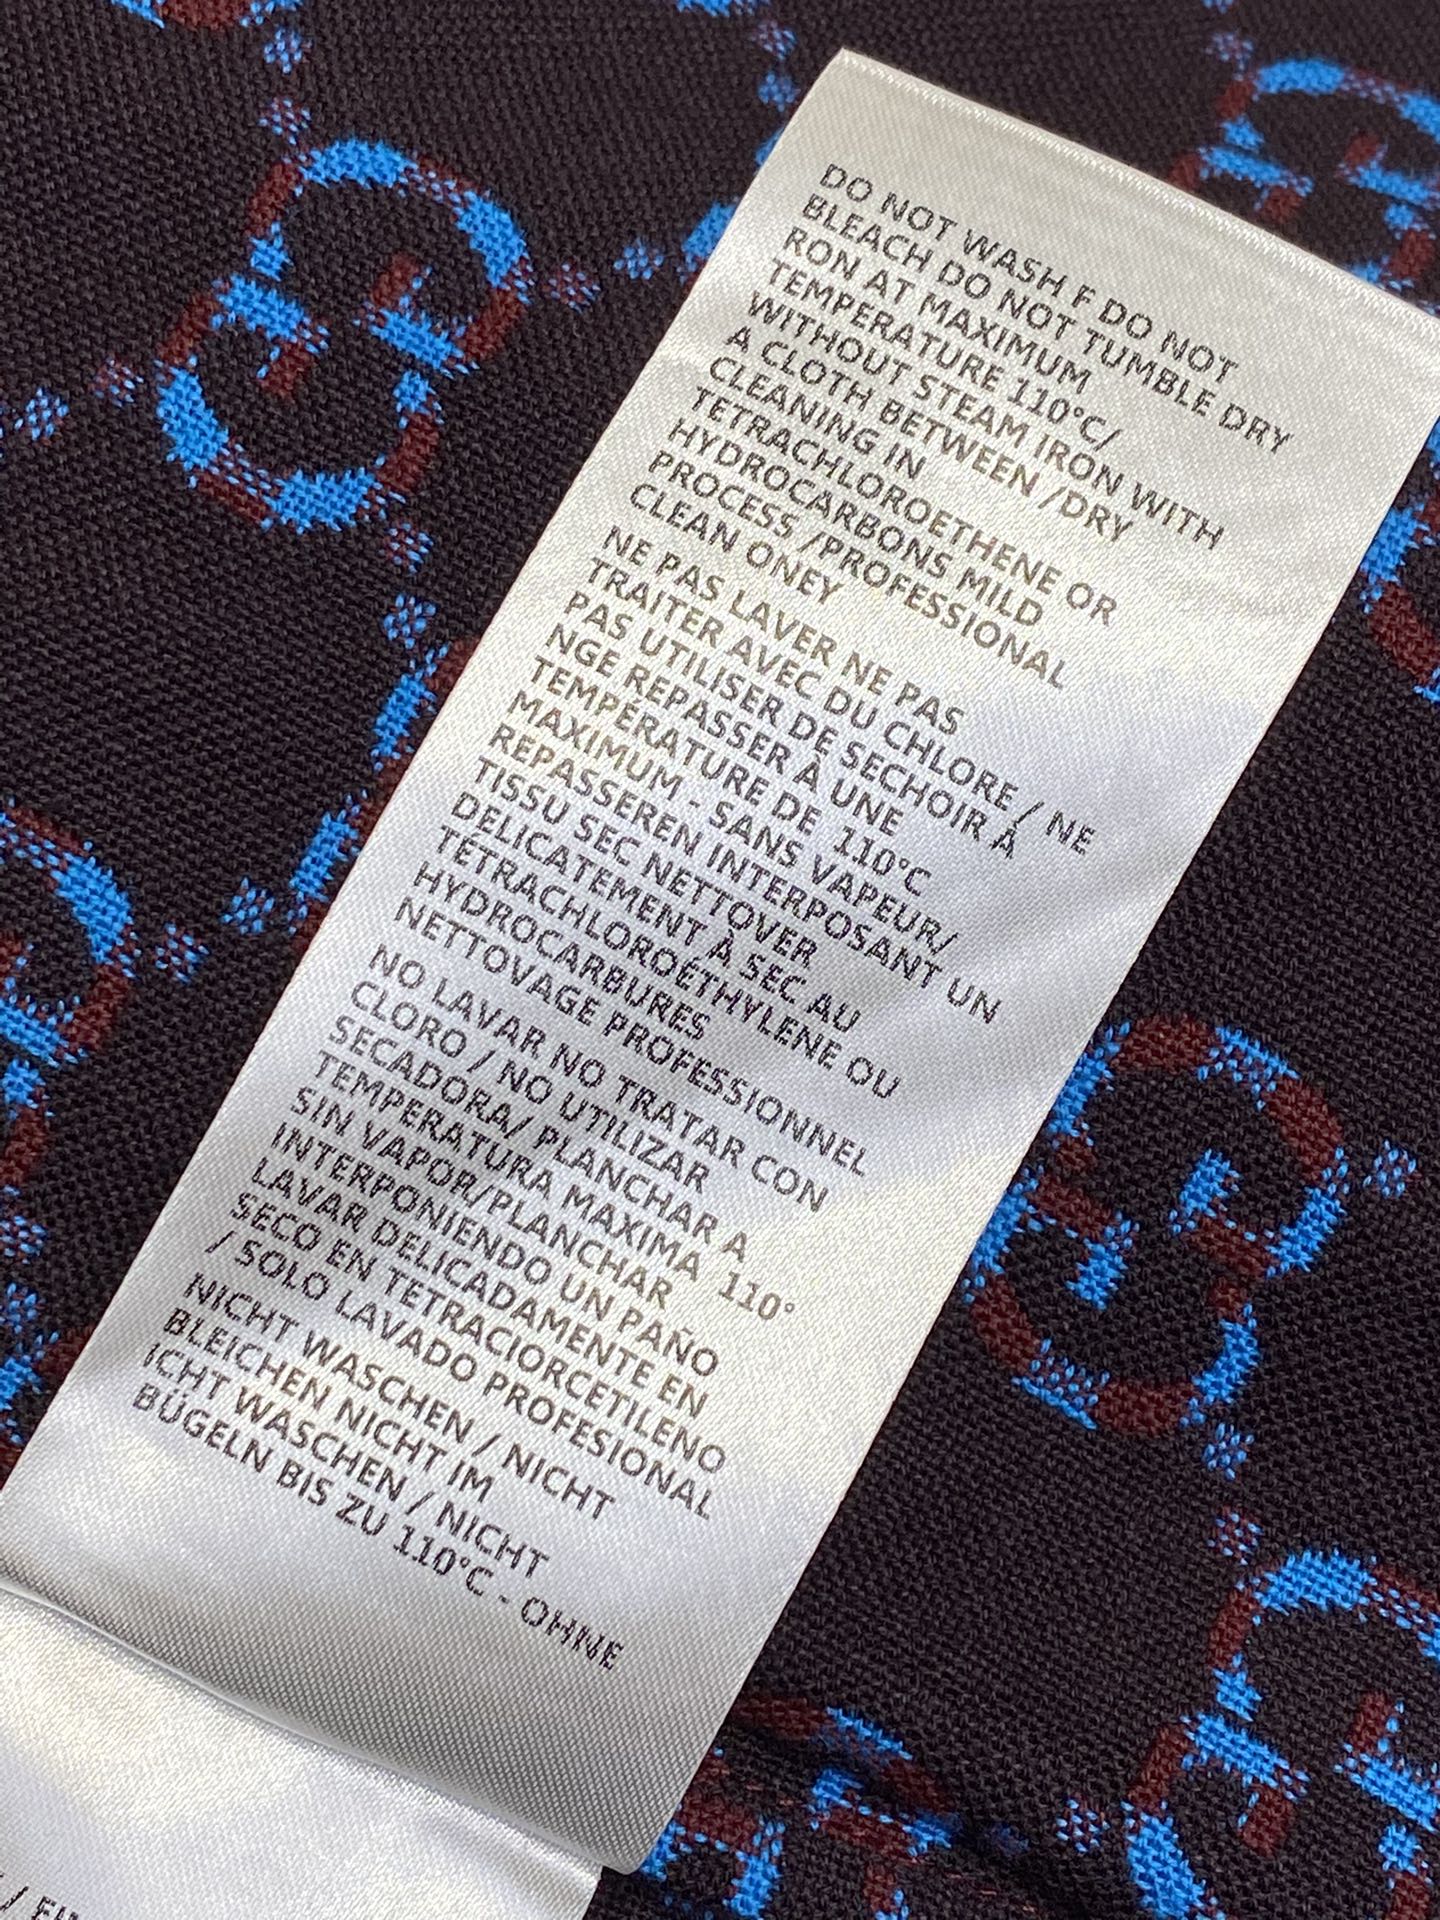 DO NOT WASH F DO NOT
BLEACH DO NOT TUMBLE DRY
RON AT MAXIMUM
TEMPERATURE 110°C/
WITHOUT STEAM IRON WITH
A CLOTH BETWEEN /DRY
CLEANING IN
TETRACHLOROETHENE OR
HYDROCARBONS MILD
PROCESS /PROFESSIONAL
CLEAN ONEY
NE PAS LAVER NE PAS
TRAITER AVEC DU CHLORE / NE
PAS UTILISER DE SECHOIR À
NGE REPASSER À UNE
TEMPÉRATURE DE 110°C
MAXIMUM - SANS VAPEUR/
REPASSEREN INTERPOSANT UN
TISSU SEC NETTOVER
DELICATEMENT À SEC AU
TÉTRACHLOROÉTHYLENE OU
HYDROCARBURES
NETTOVAGE PROFESSIONNEL
NO LAVAR NO TRATAR CON
CLORO / NO UTILIZAR
SECADORA/ PLANCHAR A
TEMPERATURA MAXIMA 110°
SIN VAPOR/PLANCHAR
INTERPONIENDO UN PAÑO
LAVAR DELICADAMENTE EN
SECO EN TETRACIORCETILENO
/ SOLO LAVADO PROFESIONAL
NICHT WASCHEN / NICHT
BLEICHEN NICHT IM
ICHT WASCHEN / NICHT
BÜGELN BIS ZU 110°C - OHNE